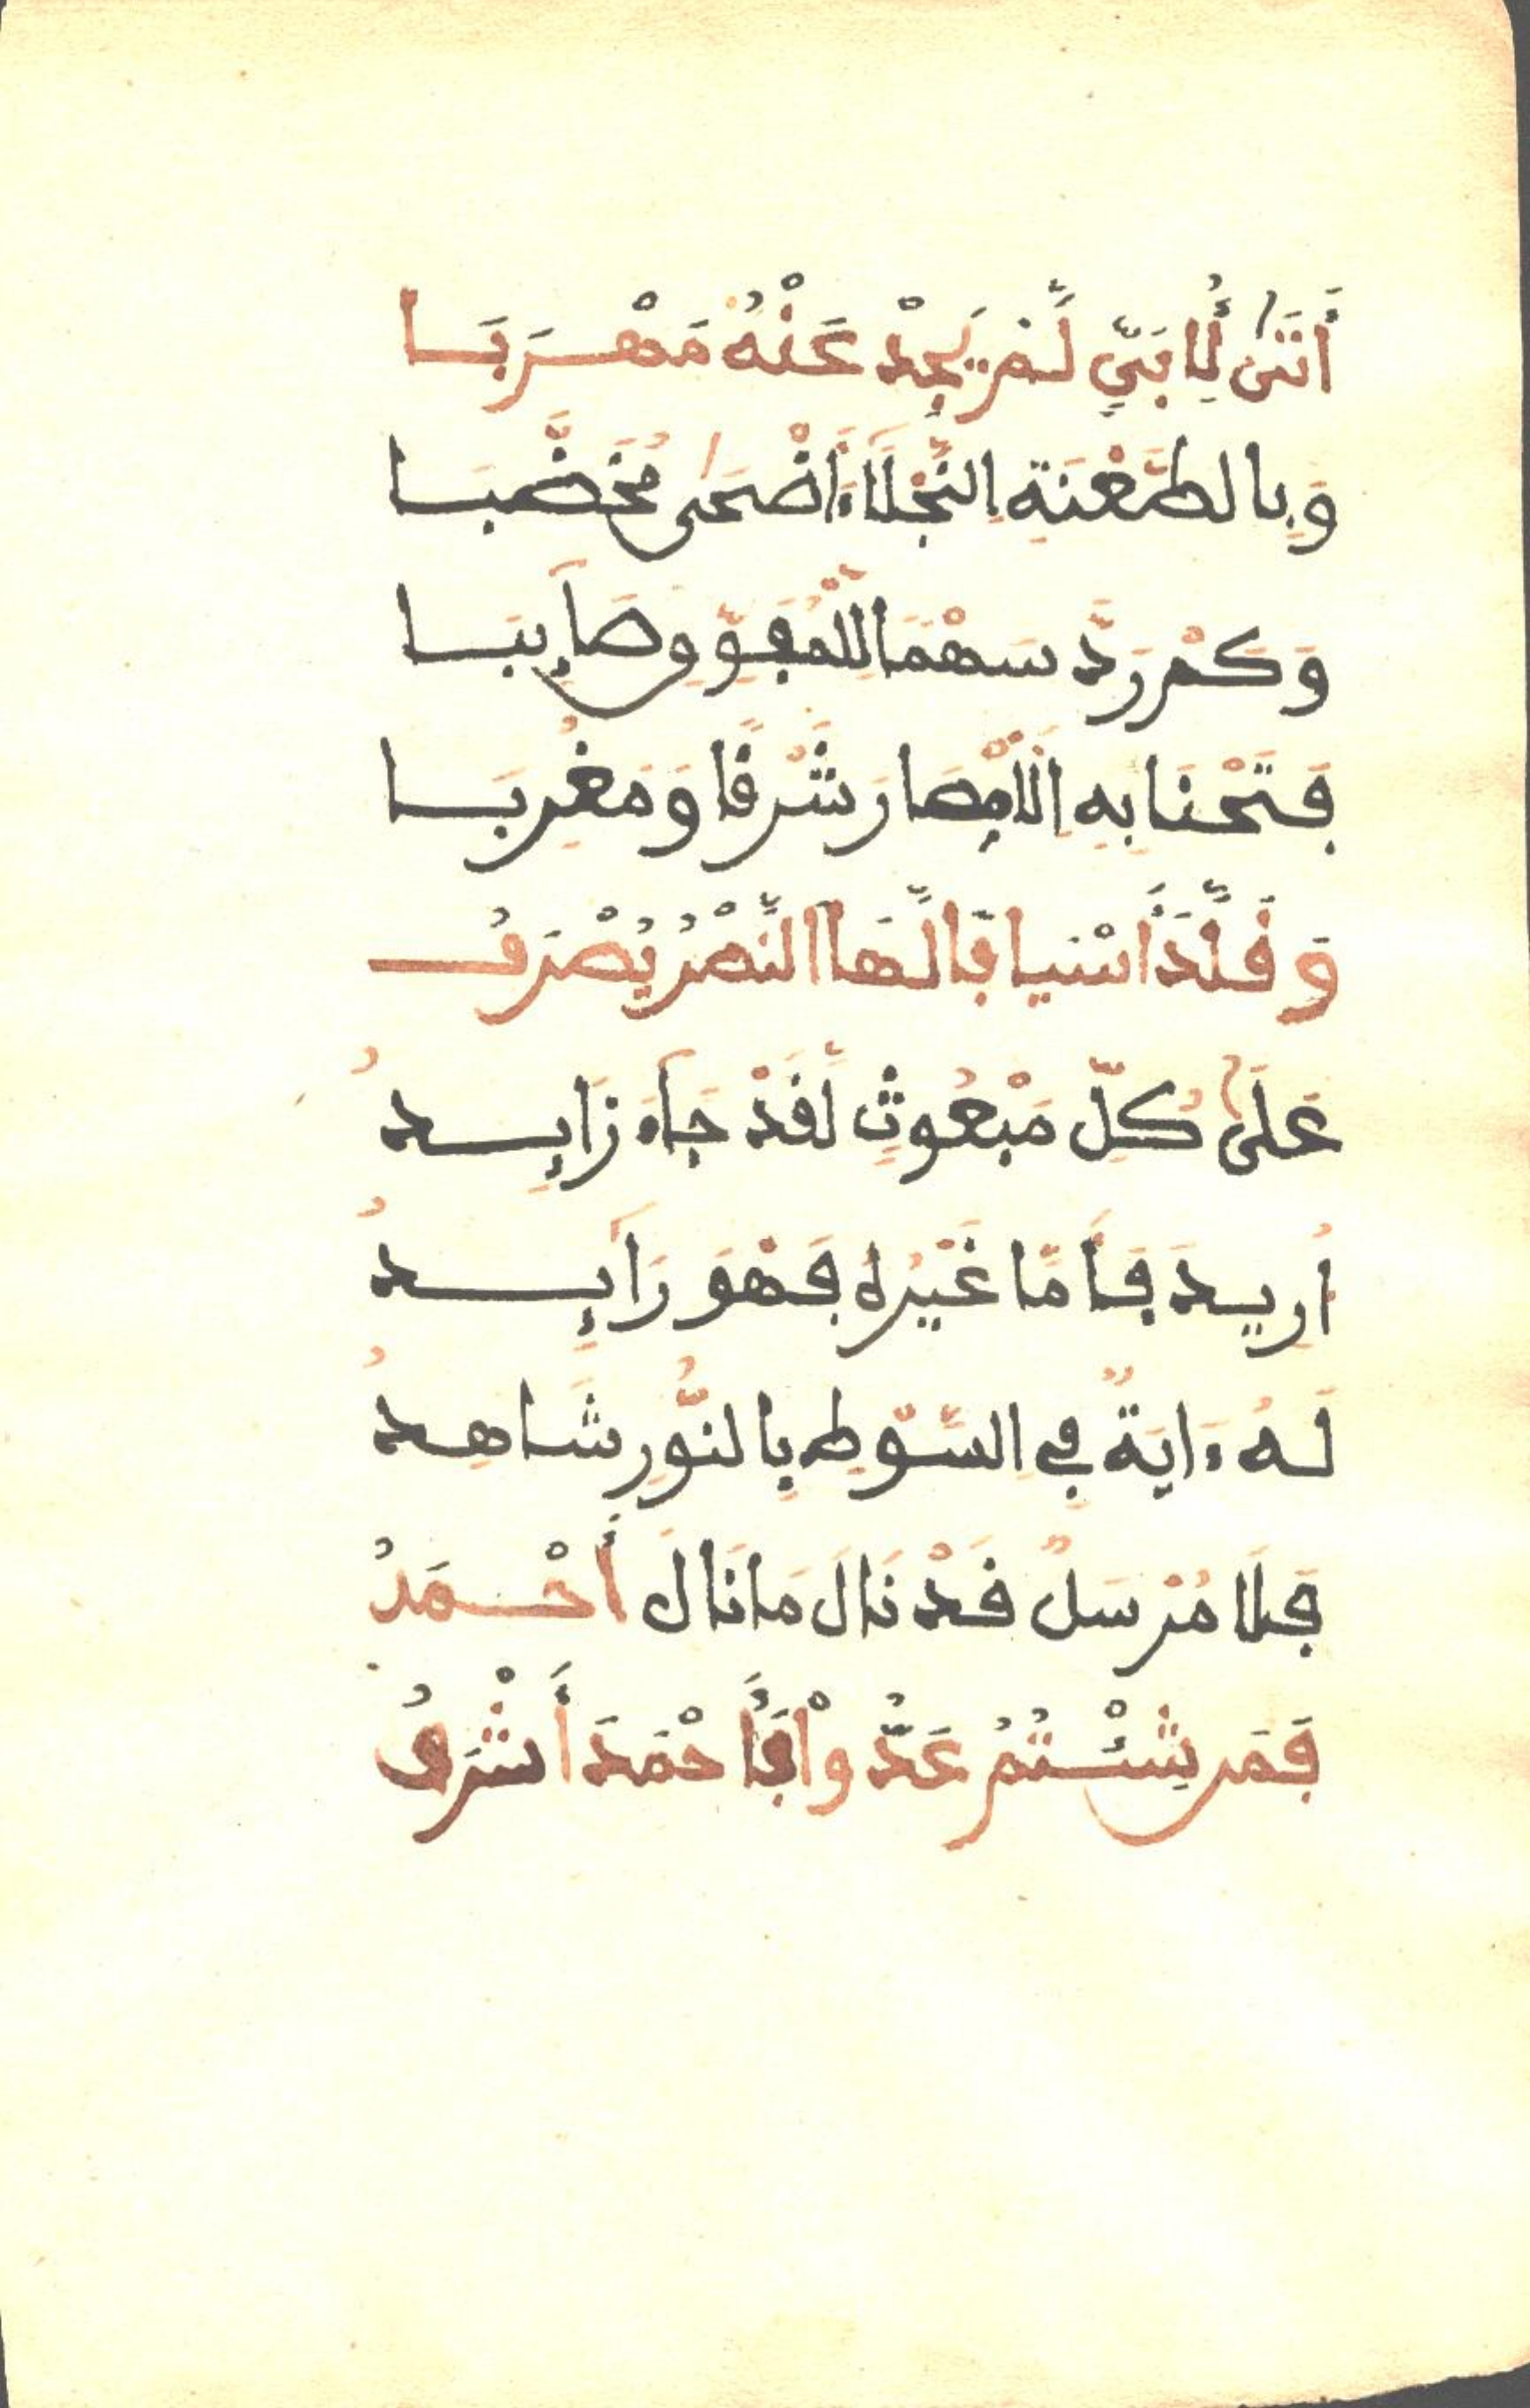 أَتَىٰ لِأُبَيٍّ لَمْ يَجِدْ عَنْهُ مَهْرَبَا
وَبِالطَّعْنَةِ النَّجْلَاءِ أَضْحَىٰ مُخَضَّبَا
وَكَمْ رَدَّ سَهْمًا لِلْمُفَوِّقِ صَآئِبَا
فَتَحْنَا بِهِ الْأَمْصَارَ شَرْقًا وَمَغْرِبَا
وَقَلَّدَ أَسْيَافًا لَهَا النَّصْرُ يُصْرَفُ
عَلَىٰ كُلِّ مَبْعُوثٍ لَقَدْ جَآءَ زَايِدُ
أُرِيدَ فَأَمَّا غَيْرُهُ فَهْوَ رَآئِدُ
لَهُ ءَايَةٌ فِي السَّوْطِ بِالنُّورِ شَاهِدُ
فَلَا مُرْسَلٌ قَدْ نَالَ مَا نَالَ أَحْمَدُ
فَمَن شِئْتُمُ عَدُّواْ فَأَحْمَدَ أَشْرَفُ